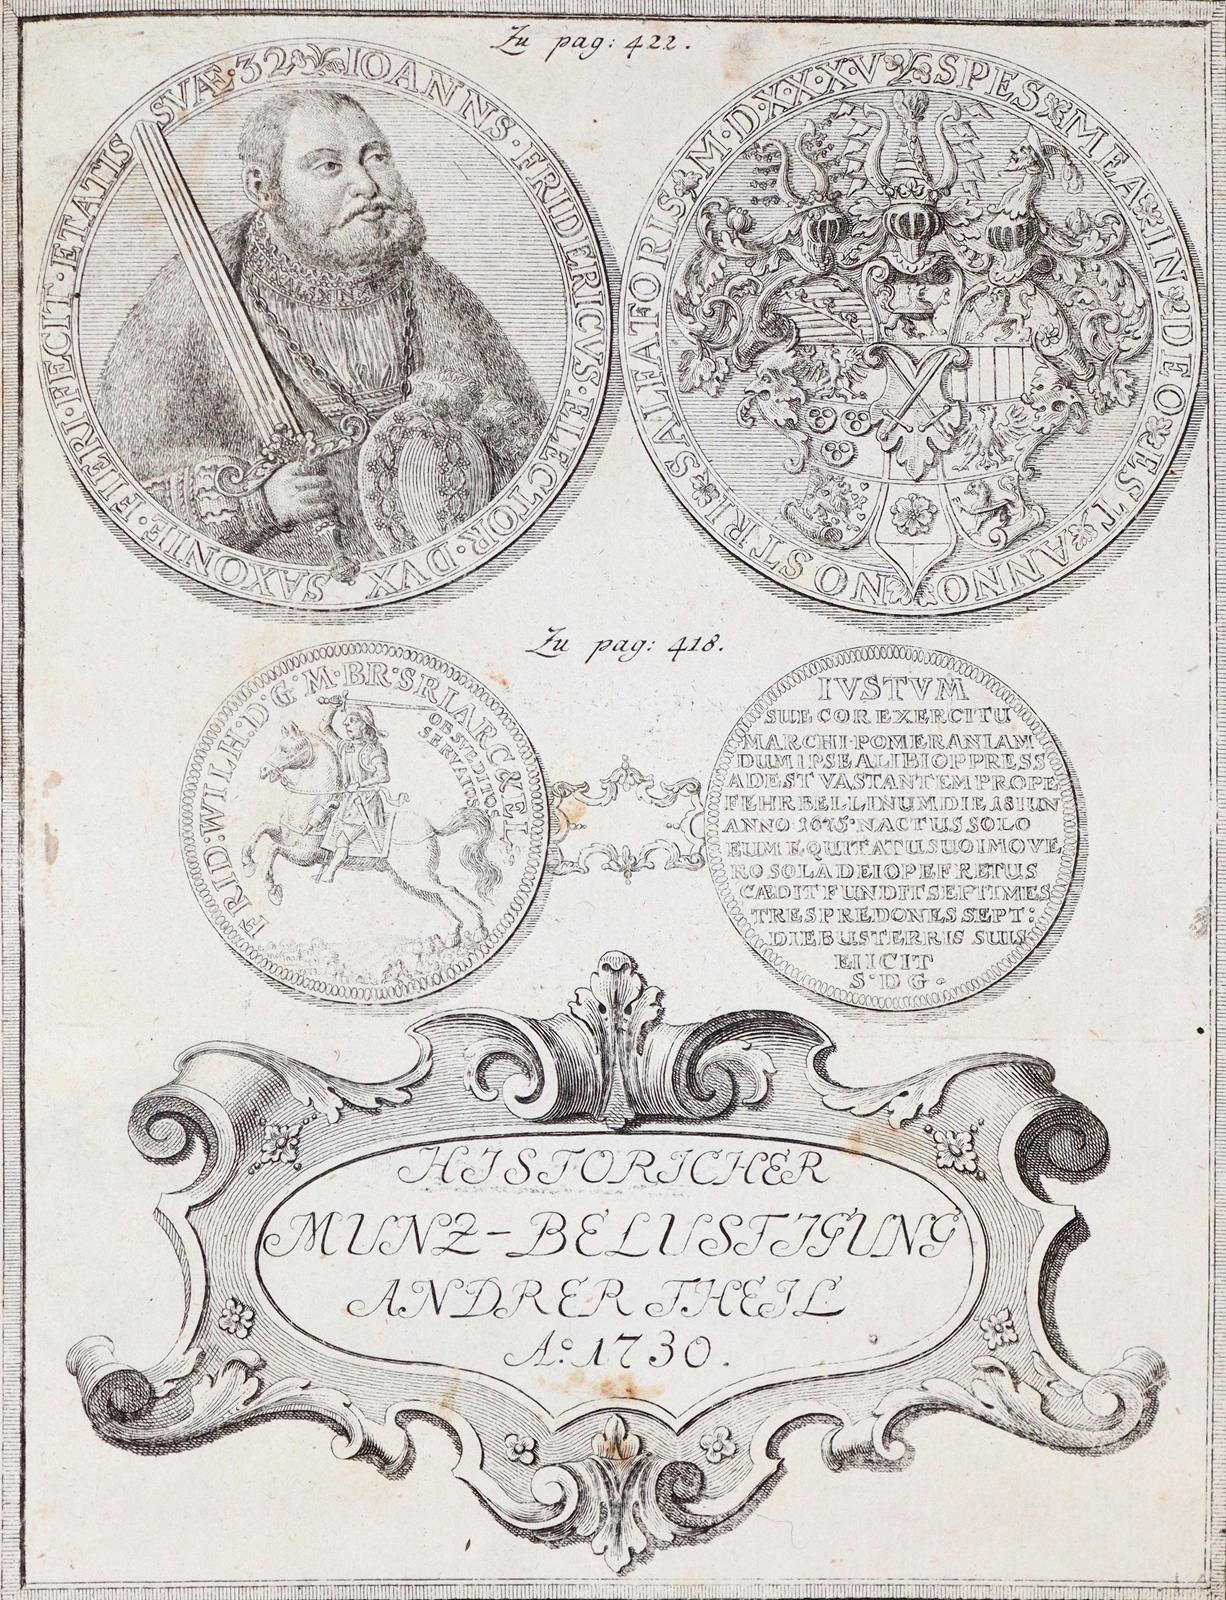 Zu pag: 422.
IOANNS · FRIDERICVS · ELECTOR · DVX · SAXONIE · FIERI · FECIT · ETATIS SVÆ · 32
SPES MEA IN DEO EST ANNO NOSTRI SALFATORIS M · D · X · X · X · V
Zu pag: 418.
FRID: WILH: D: G · M · BR · S · R I ARC & EL:
OB SVBDITOS
SERVATOS
IVSTVM
SUECOR EXERCITU
MARCHI · POMERANIAM
DUM IPSE ALIBI OPPRESS
ADEST VASTANTEM PROPE
FEHRBELLINUM DIE 18 IUN
ANNO 1675 · NACTUS SOLO
EUM EQUITATU SUO IMO VE
RO SOLA DEI OPE FRETUS
CÆDIT FUNDIT SEPTIMES
TRES PREDONES SEPT:
DIEBUS TERRIS SUIS
EIICIT
S · D G ·
HISTORICHER
MUNZ-BELUSTIGUNG
ANDRER THEIL
Ao: 1730.